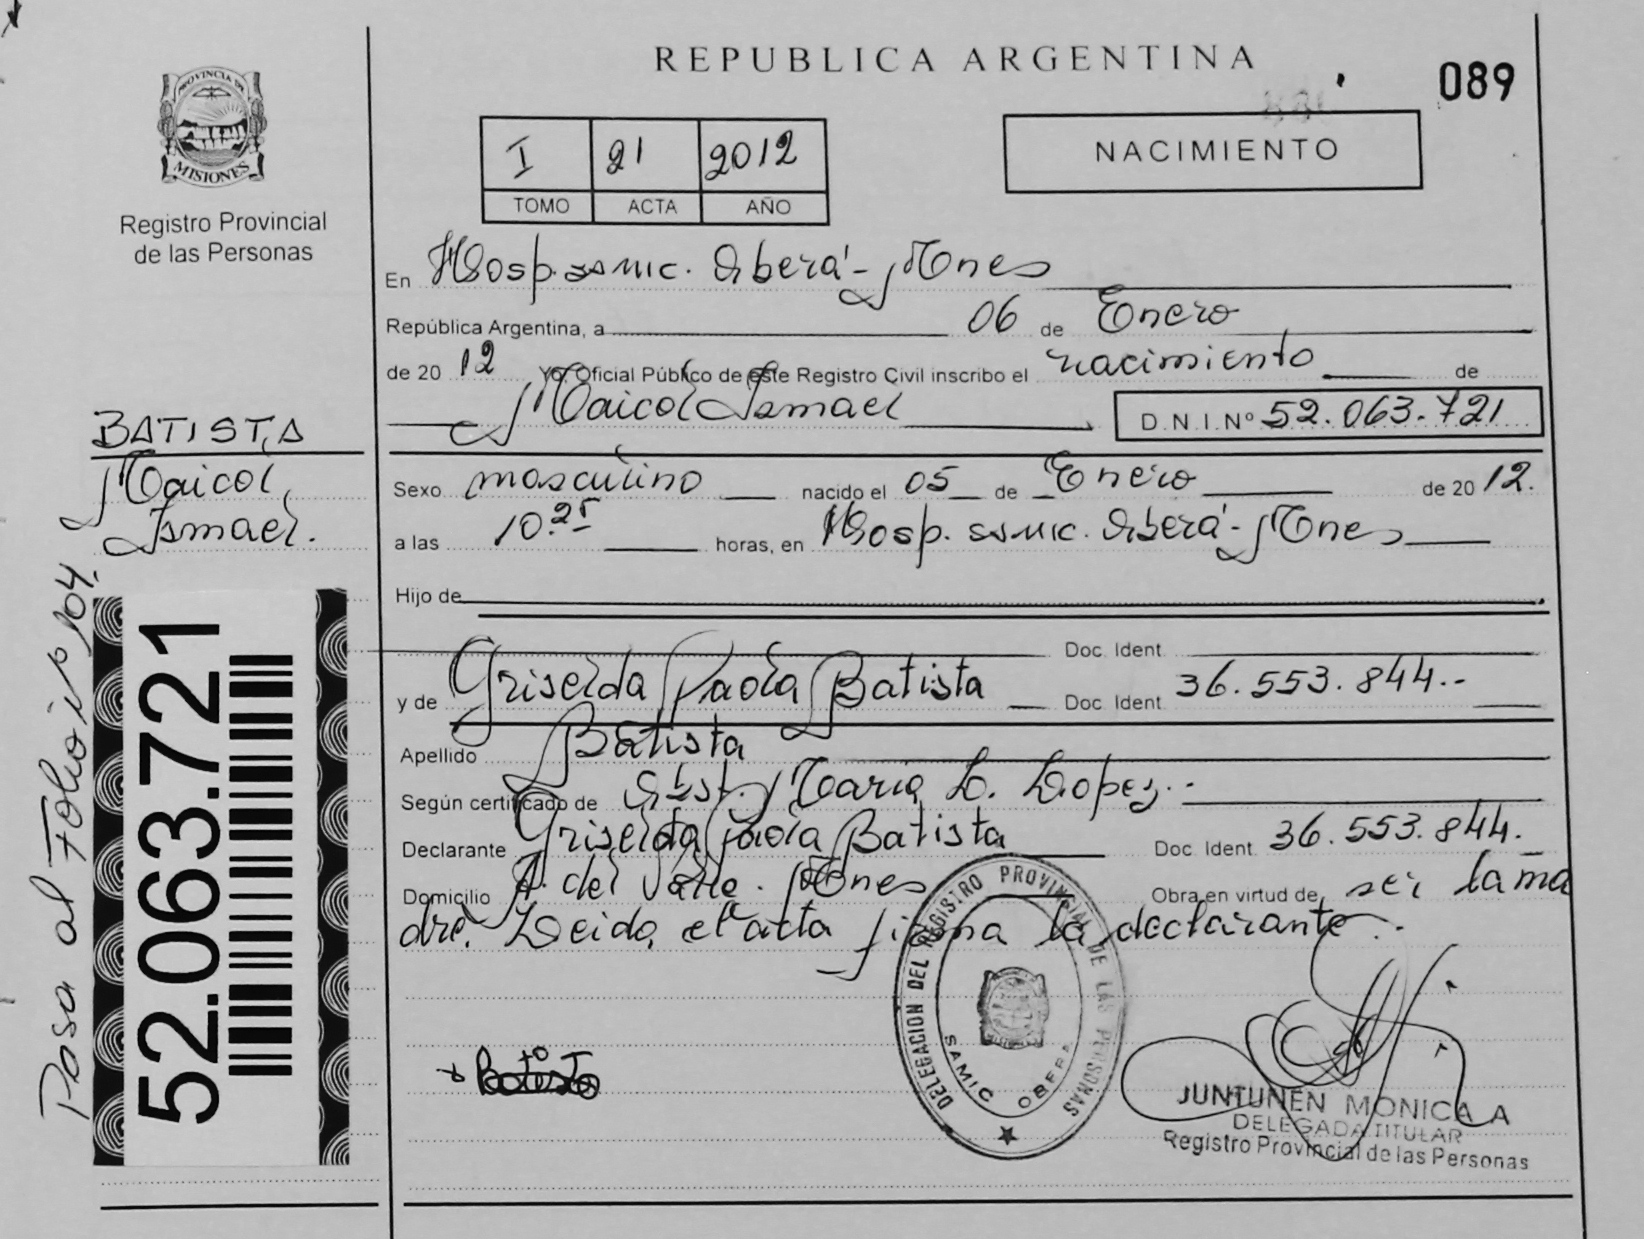 REPUBLICA ARGENTINA
089
PROVINCIA DE
MISIONES
Registro Provincial
de las Personas
I 21 2012
TOMO ACTA AÑO
NACIMIENTO
En Hosp. SAMIC. Oberá - Mnes
República Argentina, a 06 de Enero
de 20 12 Yo, Oficial Público de este Registro Civil inscribo el nacimiento de
Maicol Ismael D.N.I.Nº 52.063.721
BATISTA
Maicol,
Ismael.
Sexo masculino nacido el 05 de Enero de 20 12.
a las 10.25 horas, en Hosp. SAMIC. Oberá - Mnes
Hijo de
Doc. Ident.
y de Griselda Paola Batista Doc. Ident. 36.553.844.-
Apellido Batista
Según certificado de Obst. Maria L. Lopez.-
Declarante Griselda Paola Batista Doc. Ident. 36.553.844.
Domicilio A. del Valle. Mnes Obra en virtud de ser la ma
dre. Leida el acta firma la declarante.-
Pasa al Folio Nº 104.
52.063.721
Batista
DELEGACION DEL REGISTRO PROVINCIAL DE LAS PERSONAS
SAMIC OBERA
JUNTUNEN MONICA A
DELEGADA TITULAR
Registro Provincial de las Personas